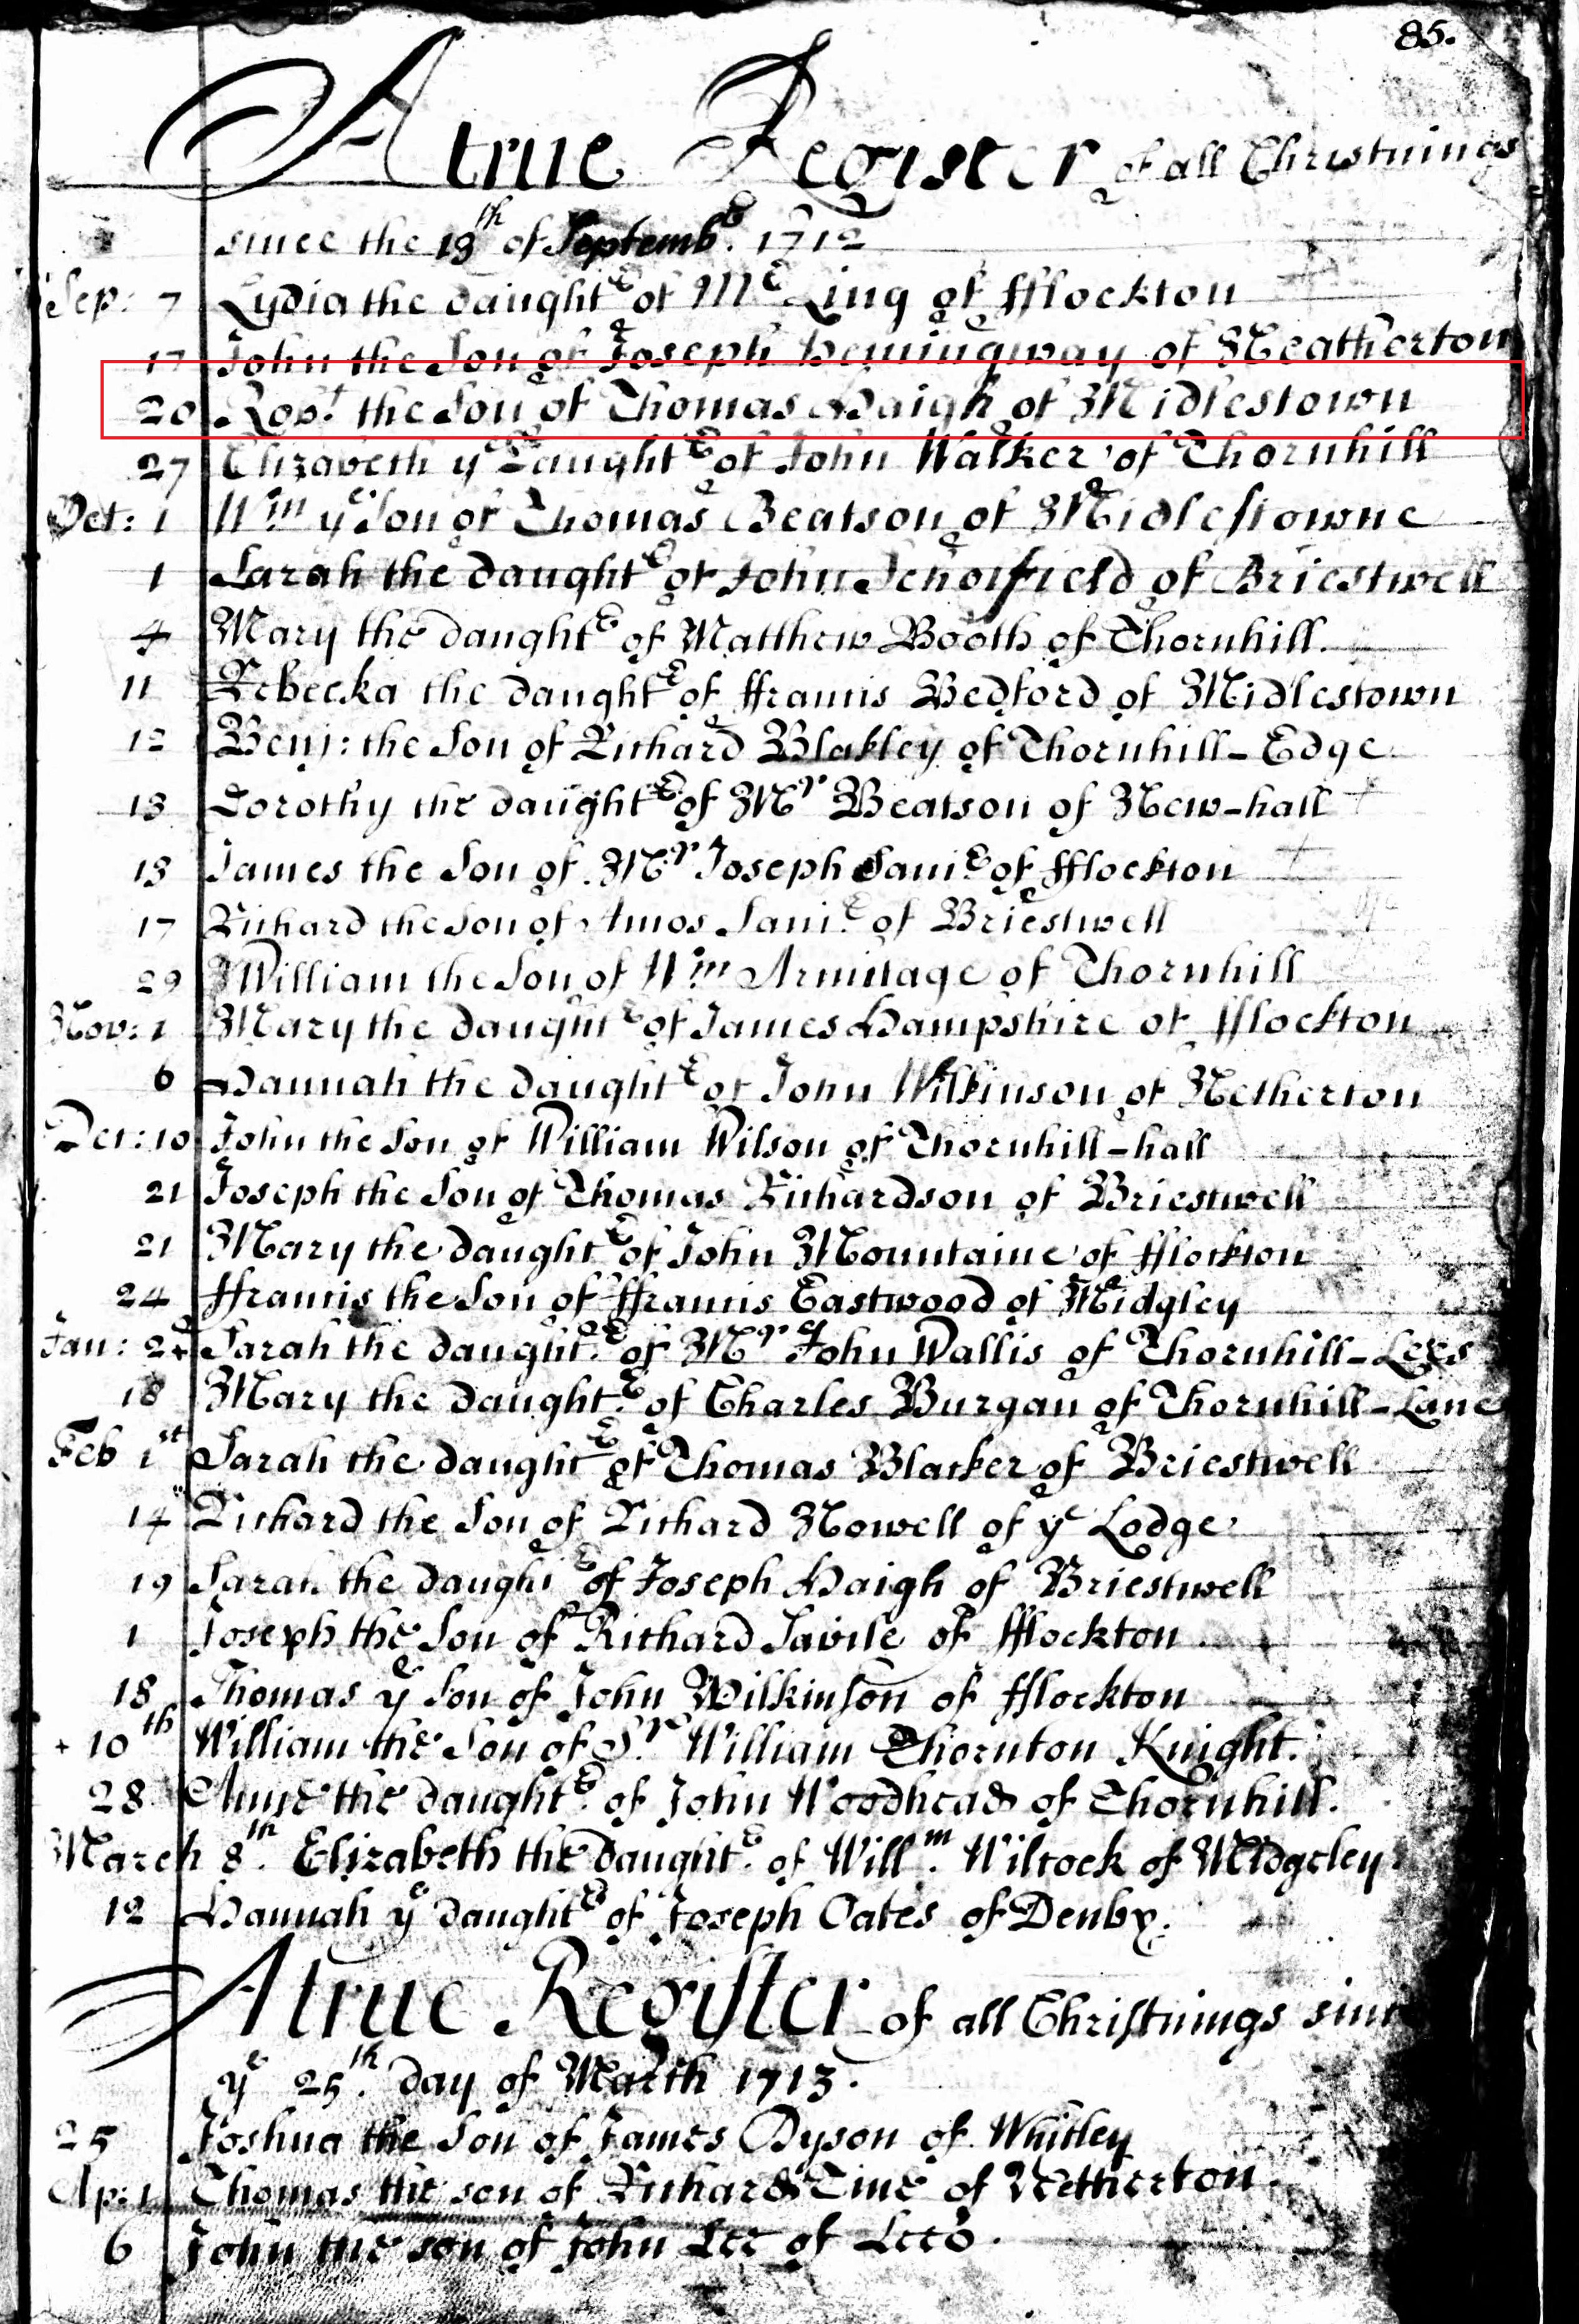 85.
A true Register of all Christnings
since the 19th of Septembr. 1712
Sep: 7 Lydia the daughtr of Mr Ling of fflockton
17 John the Son of Joseph Hemingway of Neatherton
20 Robt the Son of Thomas Haigh of Midlestown
27 Elizabeth ye Daughtr of John Walker of Thornhill
Oct: 1 Wm ye Son of Thomas Beatson of Midlestowne
1 Sarah the daughtr of John Scholfield of Briestwell
4 Mary the daughtr of Matthew Booth of Thornhill.
11 Rebecka the daughtr of ffrancis Bedford of Midlestown
12 Benj: the Son of Richard Blakley of Thornhill-Edge
13 Dorothy the daughtr of Mr Beatson of New-hall
13 James the Son of Mr Joseph of fflockton
17 Richard the Son of Amos of Briestwell
29 William the Son of Wm Armitage of Thornhill
Nov: 1 Mary the daughtr of James Hampshire of fflockton
6 Hannah the daughtr of John Wilkinson of Netherton
Dec: 10 John the Son of William Wilson of Thornhill-hall
21 Joseph the Son of Thomas Richardson of Briestwell
21 Mary the daughtr of John Mountaine of fflockton
24 ffrancis the Son of ffrancis Eastwood of Midgley
Jan: Sarah the daughtr. of Mr John Wallis of Thornhill-Lees
18 Mary the daughtr. of Charles Burgan of Thornhill-Lane
Feb 1st Sarah the daughtr of Thomas Blacker of Briestwell
14 Richard the Son of Richard Nowell of ye Lodge
19 Sarah the daughtr of Joseph Haigh of Briestwell
1 Joseph the Son of Richard Savile of fflockton
18 Thomas ye Son of John Wilkinson of fflockton
+ 10th William the Son of Sr. William Thornton Knight.
28 Anne the daughtr. of John Woodhead of Thornhill.
March 8th. Elizabeth the daughtr. of Willm. Wilcock of Midgeley
12 Hannah ye daughtr of Joseph Oates of Denby.
A true Register of all Christnings sinc
ye 25th. day of March 1713.
25 Joshua the Son of James Dyson of Whitley
Ap: 1 Thomas the son of Richard of Netherton.
6 John the son of John Lee of Lees.